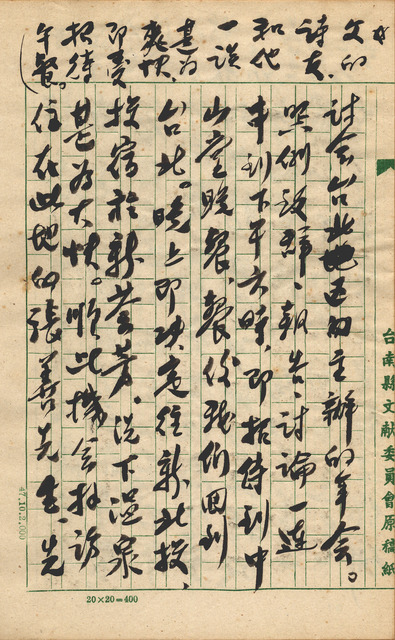 文的
詩友、
和他
一談
甚為
爽快、
即受
招待
午餐。
討会台北地区的主辦的年会。
照例致辞、報告、討論一連
串到下午六時、即招待到中
山堂晚餐、餐後我们回到
台北。晚上即决定往新北投、
投宿於新薈芳。洗下溫泉
甚為大快。順此機会拜訪
住在此地的張善先生、先
台南縣文献委員會原稿紙
20×20=400
47.10.2,000